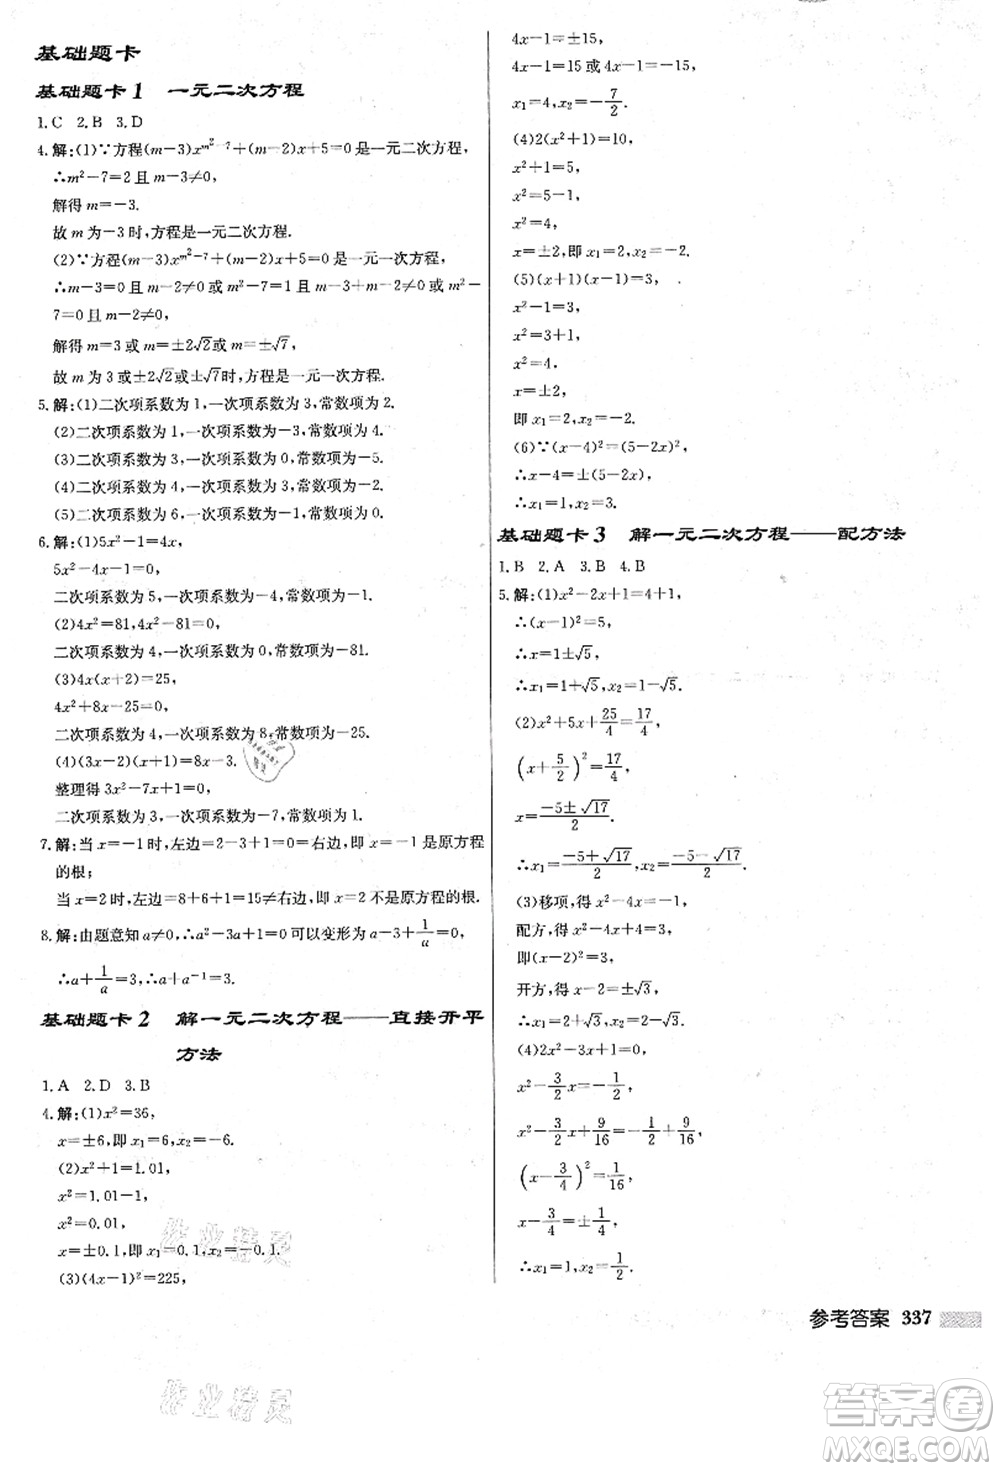 基础题卡
基础题卡1 一元二次方程
1.C 2.B 3.D
4.解:(1)∵方程(m-3)x^{m²-7}+(m-2)x+5=0是一元二次方程,
∴m²-7=2且m-3≠0,
解得m=-3.
故m为-3时,方程是一元二次方程.
(2)∵方程(m-3)x^{m²-7}+(m-2)x+5=0是一元一次方程,
∴m-3=0且m-2≠0或m²-7=1且m-3+m-2≠0或m²-
7=0且m-2≠0,
解得m=3或m=±2√2或m=±√7,
故m为3或±2√2或±√7时,方程是一元一次方程.
5.解:(1)二次项系数为1,一次项系数为3,常数项为2.
(2)二次项系数为1,一次项系数为-3,常数项为4.
(3)二次项系数为2,一次项系数为0,常数项为-5.
(4)二次项系数为2,一次项系数为3,常数项为-2.
(5)二次项系数为6,一次项系数为-1,常数项为0.
6.解:(1)5x²-1=4x,
5x²-4x-1=0,
二次项系数为5,一次项系数为-4,常数项为-1.
(2)4x²=81,4x²-81=0,
二次项系数为4,一次项系数为0,常数项为-81.
(3)4x(x+2)=25,
4x²+8x-25=0,
二次项系数为4,一次项系数为8,常数项为-25.
(4)(3x-2)(x+1)=8x-3.
整理得3x²-7x+1=0,
二次项系数为3,一次项系数为-7,常数项为1.
7.解:当x=-1时,左边=2-3+1=0=右边,即x=-1是原方程
的根;
当x=2时,左边=8+6+1=15≠右边,即x=2不是原方程的根.
8.解:由题意知a≠0,∴a²-3a+1=0可以变形为a-3+1/a=0,
∴a+1/a=3,∴a+a⁻¹=3.
基础题卡2 解一元二次方程——直接开平
方法
1.A 2.D 3.B
4.解:(1)x²=36,
x=±6,即x₁=6,x₂=-6.
(2)x²+1=1.01,
x²=1.01-1,
x²=0.01,
x=±0.1,即x₁=0.1,x₂=-0.1.
(3)(4x-1)²=225,
4x-1=±15,
4x-1=15或4x-1=-15,
x₁=4,x₂=-7/2.
(4)2(x²+1)=10,
x²+1=5,
x²=5-1,
x²=4,
x=±2,即x₁=2,x₂=-2.
(5)(x+1)(x-1)=3,
x²-1=3,
x²=3+1,
x²=4.
x=±2,
即x₁=2,x₂=-2.
(6)∵(x-4)²=(5-2x)²,
∴x-4=±(5-2x),
∴x₁=1,x₂=3.
基础题卡3 解一元二次方程——配方法
1.B 2.A 3.B 4.B
5.解:(1)x²-2x+1=4+1,
∴(x-1)²=5,
∴x=1±√5,
∴x₁=1+√5,x₂=1-√5.
(2)x²+5x+25/4=17/4,
(x+5/2)²=17/4,
x=(-5±√17)/2.
∴x₁=(-5+√17)/2,x₂=(-5-√17)/2.
(3)移项,得x²-4x=-1,
配方,得x²-4x+4=-1+4,
即(x-2)²=3,
开方,得x-2=±√3,
∴x₁=2+√3,x₂=2-√3.
(4)2x²-3x+1=0,
x²-3/2x=-1/2,
x²-3/2x+9/16=-1/2+9/16,
(x-3/4)²=1/16,
x-3/4=±1/4,
∴x₁=1,x₂=1/2.
参考答案 337
作业精灵
作业精灵
答案圈
MXQE.COM